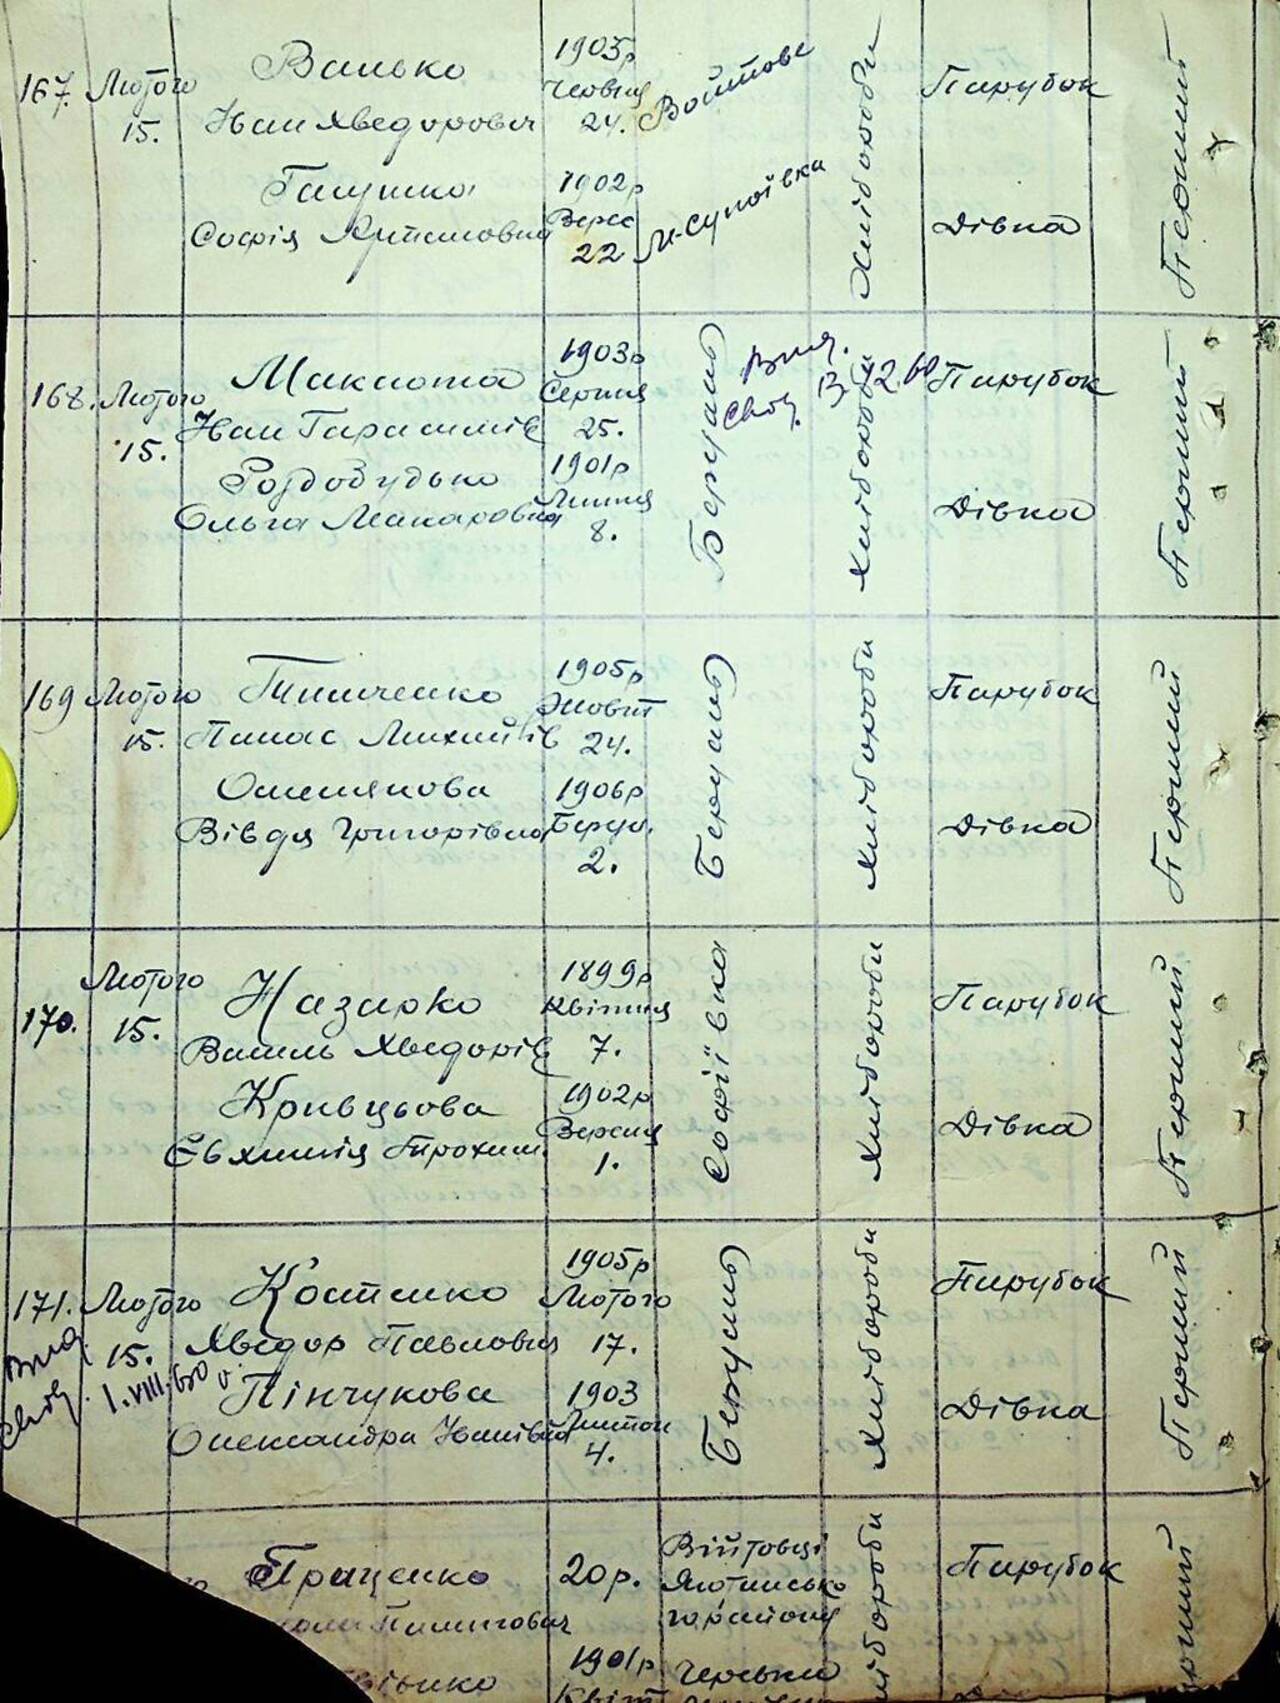 167. Лютого 15.
Ванько
Іван Хведорович
1903р
Червня
24.
Войтове
Хлібороби
Парубок
Перший
Галушка
Софія Артемовна
1902р
Верес
22
М-Супоївка
Дівка
168. Лютого 15.
Максюта
Іван Гарасимів
1903р
Серпня
25.
Березань
Вид.
Свід.
12.60
Хлібороби
Парубок
Перший
Роздобудько
Ольга Макаровна
1901р
Липня
8.
Дівка
169 Лютого 15.
Тимченко
Панас Михайлів
1905р
Жовт
24.
Березань
Хлібороби
Парубок
Перший
Омелянова
Вівдя Григорівна
1906р
Берез.
2.
Дівка
170. Лютого 15.
Назарко
Василь Хведорів
1899р
Квітня
7.
Софіївка
Хлібороби
Парубок
Перший
Кривцьова
Євхимія Трохим.
1902р
Версня
1.
Дівка
171. Лютого 15.
Вид.
Свід. 1.VIII.60
Костенко
Хведор Павлович
1905р
Лютого
17.
Березань
Хлібороби
Парубок
Перший
Пінчукова
Олександра Іванівна
1903
Листоп
4.
Дівка
Проценко
Пилипович
20р.
Війтовці
Яготинсько
го району
Парубок
1901р
Квіт